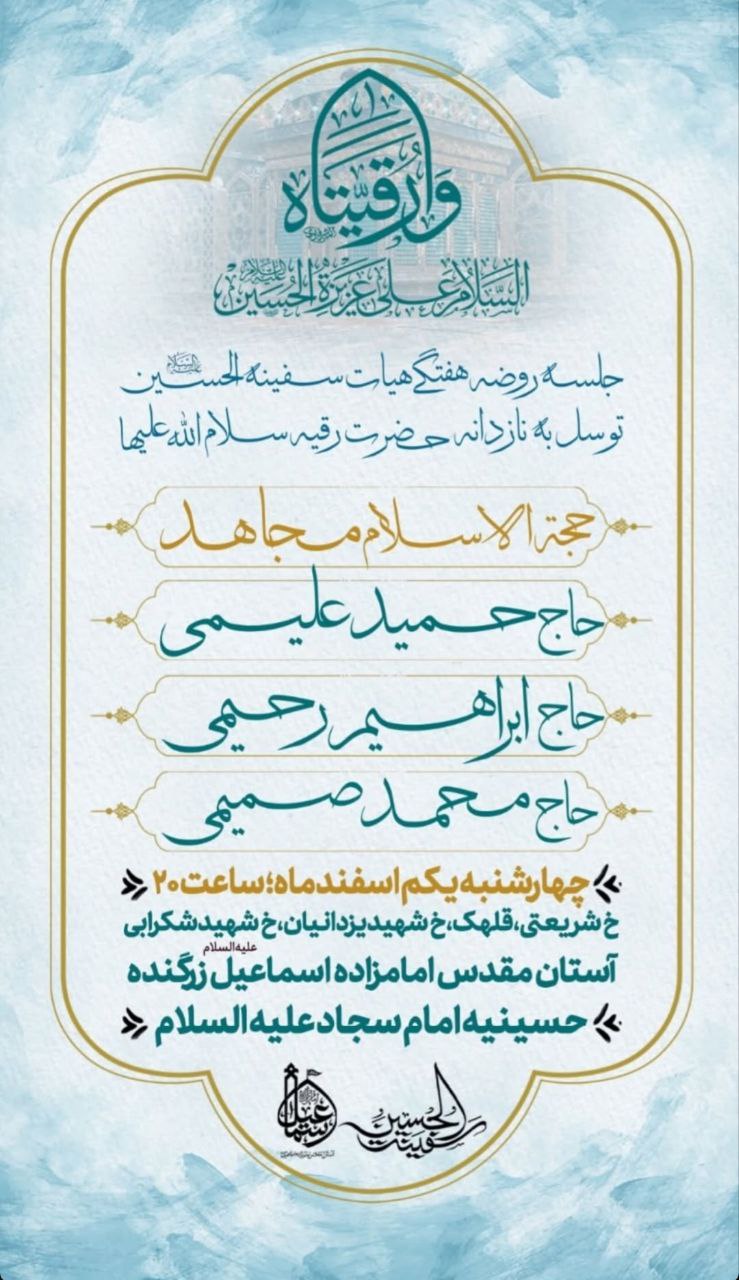 وا رقیتاه
السلام علی عزیزة الحسین علیه السلام
جلسه روضه هفتگی هیات سفینه الحسین علیه السلام
توسل به نازدانه حضرت رقیه سلام الله علیها
حجة الاسلام مجاهد
حاج حمید علیمی
حاج ابراهیم رحیمی
حاج محمد صمیمی
چهارشنبه یکم اسفندماه؛ ساعت ۲۰
خ شریعتی، قلهک، خ شهید یزدانیان، خ شهید شکرابی
آستان مقدس امامزاده اسماعیل علیه السلام زرگنده
حسینیه امام سجاد علیه السلام
سفینة الحسین
اسماعیل